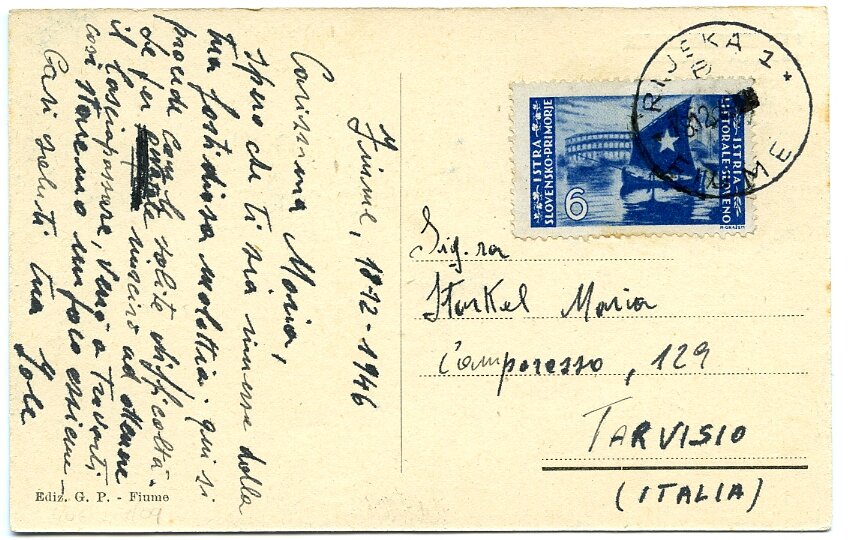 Fiume, 18-12-1946
Carissima Maria,
spero che ti sia rimessa dalla
tua fastidiosa malattia. Qui si
procede con le solite difficoltà.
Se per riuscirò ad ottenere
il lasciapassare, verrò a trovarti
così staremo un poco assieme -
Cari saluti tua Iole
Ediz. G. P. - Fiume
RIJEKA 1
FIUME
ISTRA
SLOVENSKO PRIMORJE
ISTRIA
LITTORALE-SLOVENO
6
Sig.ra
Starkel Maria
Camporosso, 129
TARVISIO
(ITALIA)